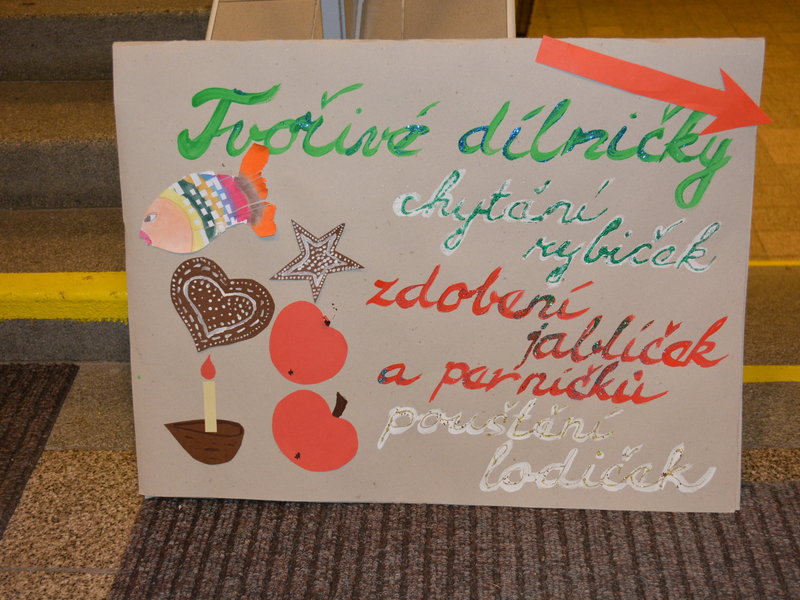 Tvořivé dílničky
chytání
rybiček
zdobení
jablíček
a perníčků
pouštění
lodiček